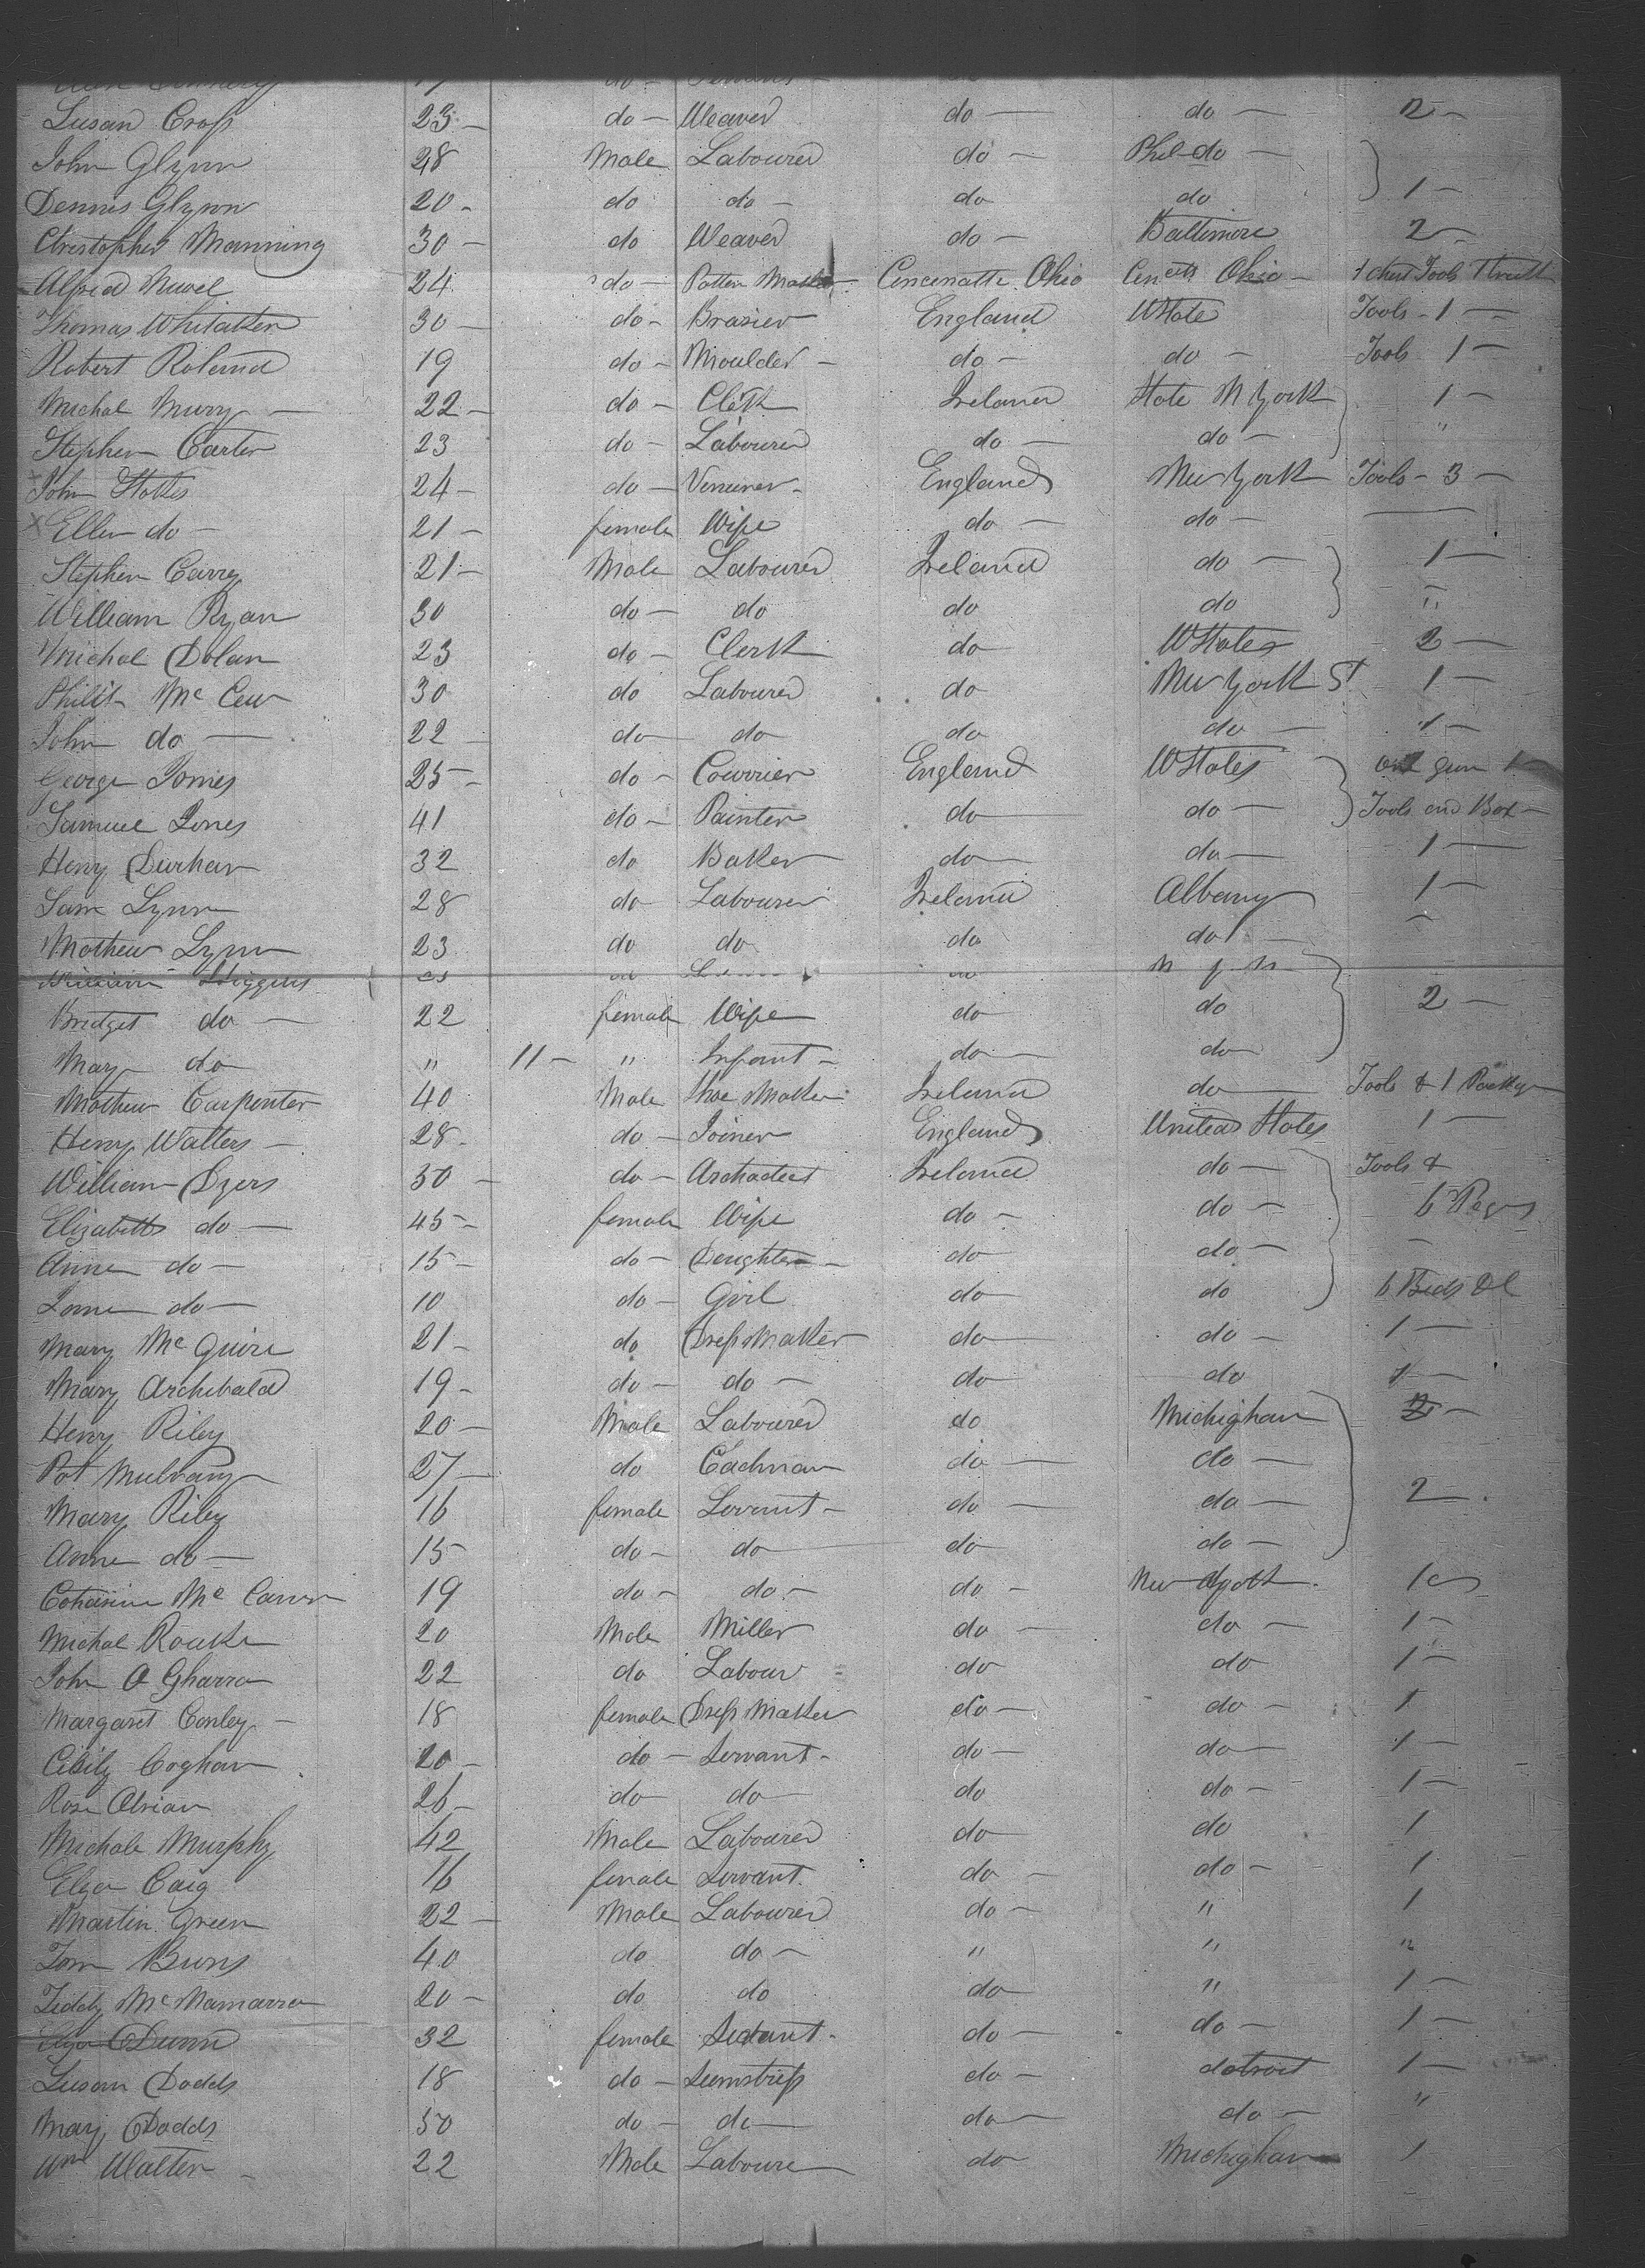 Susan Cross 23 – do – Weaver do – do – 2 –
John Glynn 28 Male Labourer do – Phil-do –
Dennis Glynn 20 – do do – do do 1 –
Christopher Manning 30 – do Weaver do – Baltimore 2 –
24 do – Pattern Maker Cincenatte Ohio Ohio – 1 chest Tools 1 trunk
Thomas Whitaker 30 – do – Brazier England UState Tools – 1 –
Robert Roland 19 do – Moulder – do – do – Tools 1 –
Michal Murry – 22 – do – Clerk Ireland State N York 1 –
Stephen Carter 23 do – Labourer do – do – "
x John Stokes 24 – do – England New York Tools – 3 –
x Ellen do – 21 – female Wife do – do –
Stephen Carrey 21 – Male Labourer Ireland do – 1 –
William Ryan 30 do – do do do "
Michal Dolan 23 do – Clerk do UStates 2 –
Philip Mc 30 do Labourer do New York St 1 –
John do – 22 – do do do do – 1 –
George Jones 25 – do – Courrier England UStates one gun 1
Samuel Jones 41 do – Painter do – do – Tools and Box –
Henry Durham 32 do Baker do – do – 1 –
Sam Lynn 28 do Labourer Ireland Albany 1 –
Mathew Lynn 23 do do do do –
William Higgins
Bridget do – 22 female Wife do do 2 –
Mary do " 11 – " Infant – do – do
Mathew Carpenter 40 Male Shoe Maker Ireland do – Tools & 1
Henry Walters – 28 – do – Joiner England United States 1 –
William Dyers 50 – do – Architect Ireland do – Tools &
Elizabeth do – 45 – female Wife do – do – 6 Pegs
Anne do – 15 – do – Doughter – do do – –
Jane do – 10 do – Girl do – do 6 Beds
Mary Mc Guire 21 – do Dress Maker do – do – 1 –
Mary Archibald 19 – do – do – do – do 1 –
Henry Riley 20 – Male Labourer do Michighan 2 –
Pat Mulvany 27 – do Cachman do – do –
Mary Riley 16 female Servant – do – do – 2 –
Anne do – 15 – do – do do do –
Catharine Mc 19 do – do – do – New York 1
Michal Roake 20 Male Miller do – do – 1 –
John O Gharra 22 do Labour do do 1 –
Margaret Conley – 18 female Dress Maker do – do – 1
Cicily Coghan 20 – do – Servant – do – do – 1 –
Rose Obrian 26 – do do do do – 1 –
Michale Murphy 42 Male Labourer do do 1
Eliza Caig 16 female Servant do – do – 1
Martin Green 22 – Male Labourer do – " 1
Tom Burns 40 do do – " " "
Teddy Mc Namarra 20 – do do do " 1 –
Eliza Dunn 32 female Servant – do – do – 1 –
Susan Dodds 18 do – Seemstress do – detroit 1 –
Mary Dodds 50 do – do – do – do – "
Wm Walter – 22 Male Laboure do Michighan 1